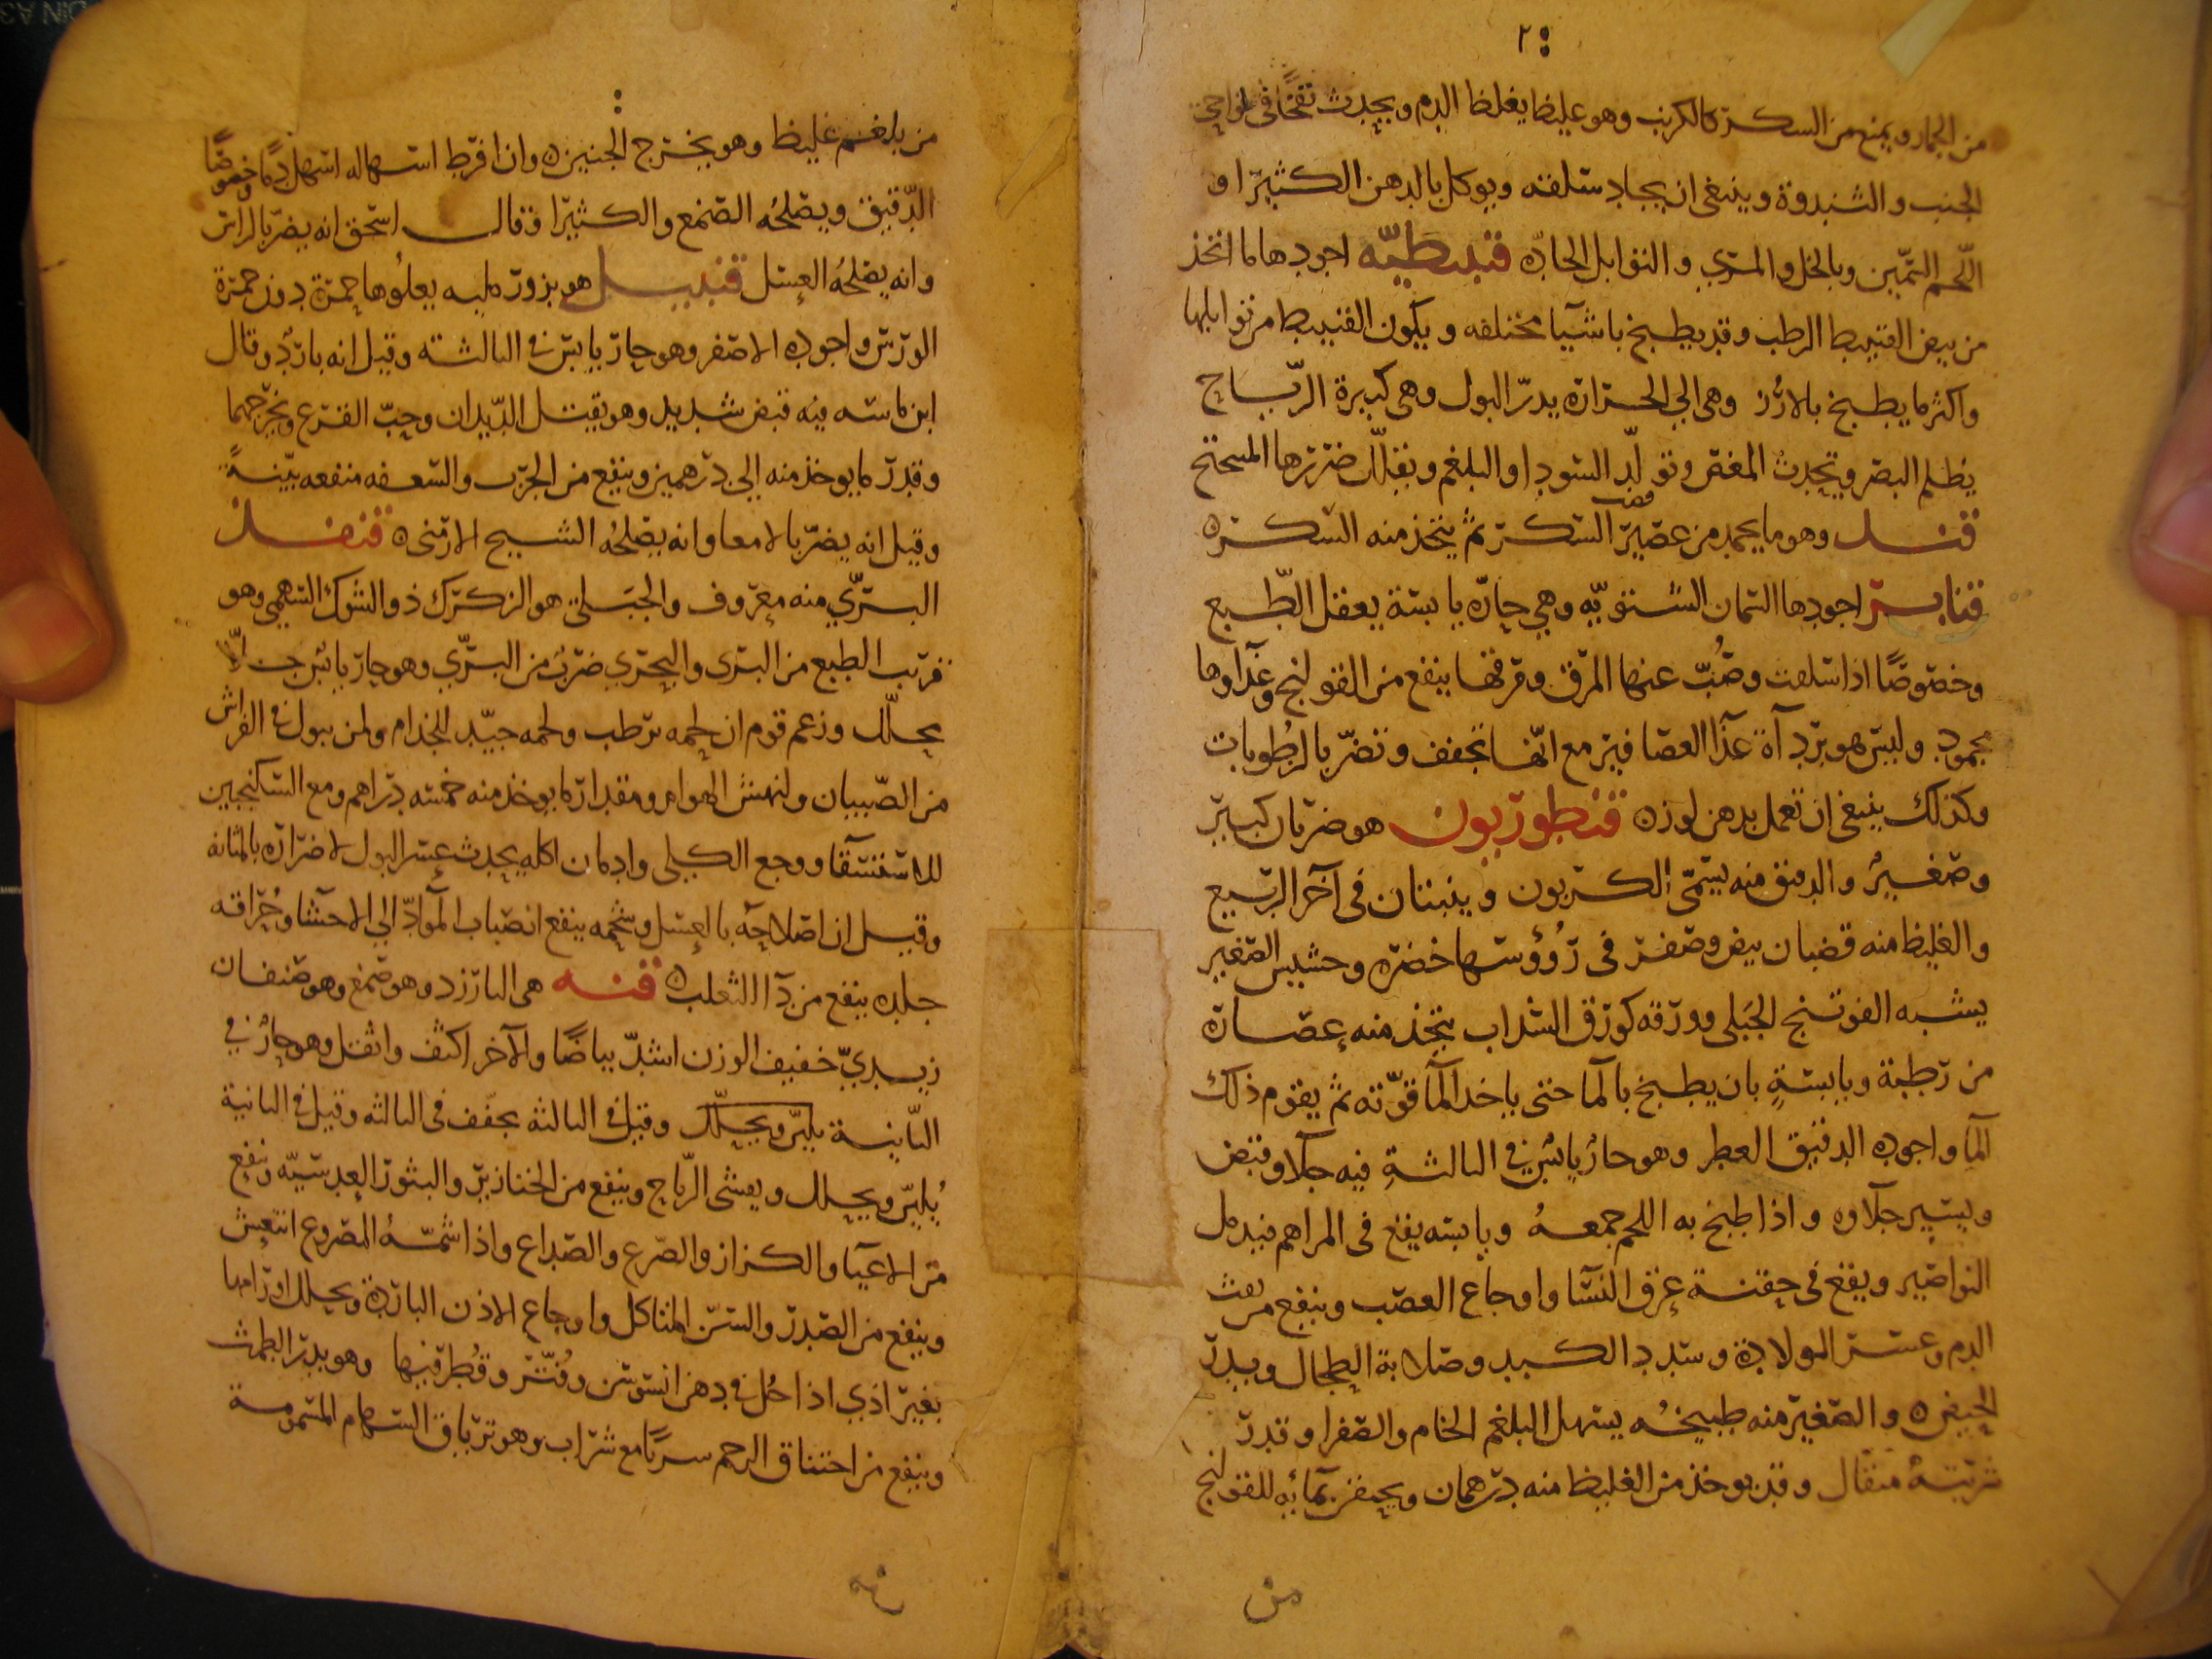 ٢
من الخمار ويمنع من السكر كالكرنب وهو غليظ يغلظ الدم ويحدث نفخًا في نواحي
الجنب والثندوة وينبغي ان يجاد سلقه ويوكل بالدهن الكثير او
اللحم السمين وبالخل والمري والتوابل الحاره قنبيطيّه اجودها ما اتخذ
من بيض القنبيط الرطب وقد يطبخ باشيا مختلفه ويكون القنبيط من توابلها
واكثر ما يطبخ بالارُز وهى الي الحراره يدرّ البول وهى كبيرة الرّياح
يظلم البصر وتحدث المغص وتولّد السودا والبلغم ويقلّل ضررها
قند وهو ما يجمد من عصير قصب السكر ثم يتخذ منه السكره
قنابر اجودها السمان وهي حارّه يابسة يعقل الطّبع
وخصوصًا اذا سلقت وصُبّ عنها المرق ومرقها ينفع من القولنج وغذاوها
محمود وليس هو برداة غذا العصافير مع انّها تجفف وتضرّ بالرطوبات
وكذلك ينبغي ان تعمل بدهن لوزه قنطوريون هو ضربان كبير
وصغيرُ والدقيق منه يسمّى وينبتان فى آخر الربيع
والغليظ منه قضبان بيض وصفر فى رُوؤسها خضره وحشيش الصغير
يشبه الفوتنج الجبلى وورقه كورق السداب يتخذ منه عصاره
من رطبة ويابسةٍ بان يطبخ بالما حتى ياخذ الما قوّته ثم يقوم ذلك
الما واجوده الدقيق العطر وهو حارُ يابسُ في الثالثةِ فيه جلا وقبض
ويسير حلاوه واذا طبخ به اللحم جمعهُ ويابسه يقع فى المراهم فيدمل
النواصير ويقع فى حقنة عرق النسا واوجاع العصب وينفع من نفث
الدم وعسر الولادة وسدد الكبد وصلابة الطحال ويدر
الحيض ه والصغير منه طبيخُه يسهل البلغم الخام والصفرا وقدر
شربته مثقال وقد يوخذ من الغليظ منه درهمان ويحقن بمائه للقولنج
من
من بلغم غليظ وهو يخرج الجنين ه وان افرط اسهاله اسهل دمًا وخصوصًا
الدّقيق ويصلحُه الصمغ والكثيرا وقال اسحق انه يضرّ بالراس
وانه يصلحُه العسل قنبيل هو بزور رمليه يعلوُها حمرة دون حمرة
الورس واجوده الاصفر وهو حار يابس في الثالثة وقيل انه باردُ وقال
ابن ماسه فيه قبض شديد وهو يقتل الدّيدان وحبّ القرع ويخرجهما
وقدر ما يوخذ منه إلي درهمين وينفع من الجرب والسعفه منفعه بيّنةً
وقيل انه يضرّ بالامعا وانه يصلحُه الشيح الارمنى ه قنفذ
البرّي منه معروف والجبلى هو الزكرك ذو الشوك السهمى وهو
قريب الطبع من البرى والبحري ضربُ من البرّي وهو حارّ يابس جدًّا
يحلّل وزعم قوم ان لحمه يرطب ولحمه جيّد للجذام ولمن يبول في الفراش
من الصّبيان ولنهش الهوام ومقدار ما يوخذ منه خمسه دراهم ومع السكنجبين
للاستسقا ووجع الكلى وادمان اكله يحدث عسر البول لاضراره بالمثانه
وقيل ان اصلاحه بالعسل وشحمه ينفع انصباب الموادّ الي الاحشا وحُراقه
جلده ينفع من دآ الثعلب ه قنه هى البارزد وهو صمغ وهو صنفان
زبديّ خفيف الوزن اشدّ بياضًا والآخر اكثف واثقل وهو حارُ في
الثّانية يليّن ويحلّل وقيل في الثالثه يجفّف فى الثالثه وقيل في الثانية
يُليّن ويحلل ويفشى الرّياح وينفع من الخنازير والبثور العدسيّه وينفع
من الاعيا والكزاز والصّرع والصّداع واذا شمّهُ المصروع انتعش
وينفع من الصّدر والسّن المتاكل واوجاع الاذن الباردة ويحلل اورامها
بغير اذي اذا حُلّ في دهن السوسن وفُتّر وقُطر فيها وهو يدرّ الطمث
وينفع من اختناق الرحم سربًا مع شراب وهو ترياق السهام المسمومة